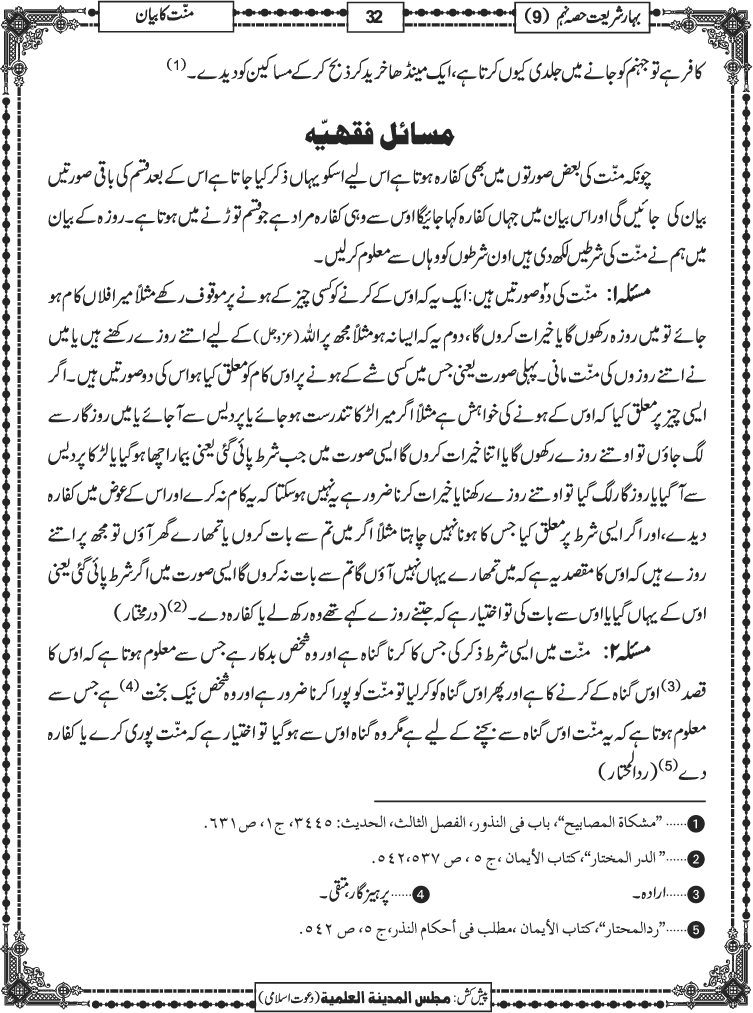 بہار شریعت حصہ نہم (9)
32
منّت کا بیان
کافر ہے تو جہنم کو جانے میں جلدی کیوں کرتا ہے، ایک مینڈھا خرید کر ذبح کر کے مساکین کو دیدے۔(1)
مسائل فقهیّه
چونکہ منّت کی بعض صورتوں میں بھی کفارہ ہوتا ہے اس لیے اسکو یہاں ذکر کیا جاتا ہے اس کے بعد قسم کی باقی صورتیں
بیان کی جائیں گی اور اس بیان میں جہاں کفارہ کہا جائیگا اوس سے وہی کفارہ مراد ہے جو قسم توڑنے میں ہوتا ہے۔ روزہ کے بیان
میں ہم نے منّت کی شرطیں لکھ دی ہیں اون شرطوں کو وہاں سے معلوم کر لیں۔
مسئلہ ۱: منّت کی دو۲ صورتیں ہیں: ایک یہ کہ اوس کے کرنے کو کسی چیز کے ہونے پر موقوف رکھے مثلاً میرا فلاں کام ہو
جائے تو میں روزہ رکھوں گا یا خیرات کروں گا، دوم یہ کہ ایسا نہ ہو مثلاً مجھ پر اللہ (عزوجل) کے لیے اتنے روزے رکھنے ہیں یا میں
نے اتنے روزوں کی منّت مانی۔ پہلی صورت یعنی جس میں کسی شے کے ہونے پر اوس کام کو معلق کیا ہو اس کی دو صورتیں ہیں۔ اگر
ایسی چیز پر معلق کیا کہ اوس کے ہونے کی خواہش ہے مثلاً اگر میرا لڑکا تندرست ہو جائے یا پردیس سے آجائے یا میں روزگار سے
لگ جاؤں تو اوتنے روزے رکھوں گا یا اتنا خیرات کروں گا ایسی صورت میں جب شرط پائی گئی یعنی بیمار اچھا ہو گیا یا لڑکا پردیس
سے آگیا یا روزگار لگ گیا تو اوتنے روزے رکھنا یا خیرات کرنا ضرور ہے یہ نہیں ہو سکتا کہ یہ کام نہ کرے اور اس کے عوض میں کفارہ
دیدے، اور اگر ایسی شرط پر معلق کیا جس کا ہونا نہیں چاہتا مثلاً اگر میں تم سے بات کروں یا تمھارے گھر آؤں تو مجھ پر اتنے
روزے ہیں کہ اوس کا مقصد یہ ہے کہ میں تمھارے یہاں نہیں آؤں گا تم سے بات نہ کروں گا ایسی صورت میں اگر شرط پائی گئی یعنی
اوس کے یہاں گیا یا اوس سے بات کی تو اختیار ہے کہ جتنے روزے کہے تھے وہ رکھ لے یا کفارہ دے۔(2) (درمختار)
مسئلہ ۲: منّت میں ایسی شرط ذکر کی جس کا کرنا گناہ ہے اور وہ شخص بدکار ہے جس سے معلوم ہوتا ہے کہ اوس کا
قصد(3) اوس گناہ کے کرنے کا ہے اور پھر اوس گناہ کو کر لیا تو منّت کو پورا کرنا ضرور ہے اور وہ شخص نیک بخت(4) ہے جس سے
معلوم ہوتا ہے کہ یہ منّت اوس گناہ سے بچنے کے لیے ہے مگر وہ گناہ اوس سے ہو گیا تو اختیار ہے کہ منّت پوری کرے یا کفارہ
دے(5) (ردالمحتار)
1......"مشكاة المصابيح"، باب فى النذور، الفصل الثالث، الحديث: ٣٤٤٥، ج١، ص٦٣١.
2......"الدر المختار"، كتاب الأيمان، ج ٥، ص ٥٤٢،٥٣٧.
3......ارادہ۔ 4......پرہیزگار، متقی۔
5......"ردالمحتار"، كتاب الأيمان، مطلب فى أحكام النذر، ج ٥، ص ٥٤٢.
پیش کش: مجلس المدينة العلمية (دعوت اسلامی)